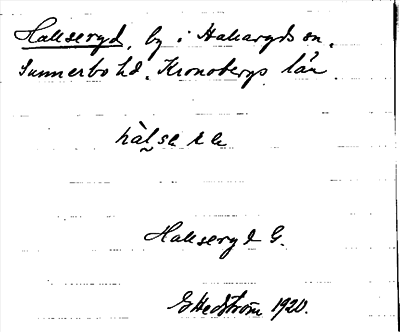 Hallseryd, by i Hallaryds sn,
Sunnerbo hd, Kronobergs län.
Hallseryd G.
E Hedström 1920.